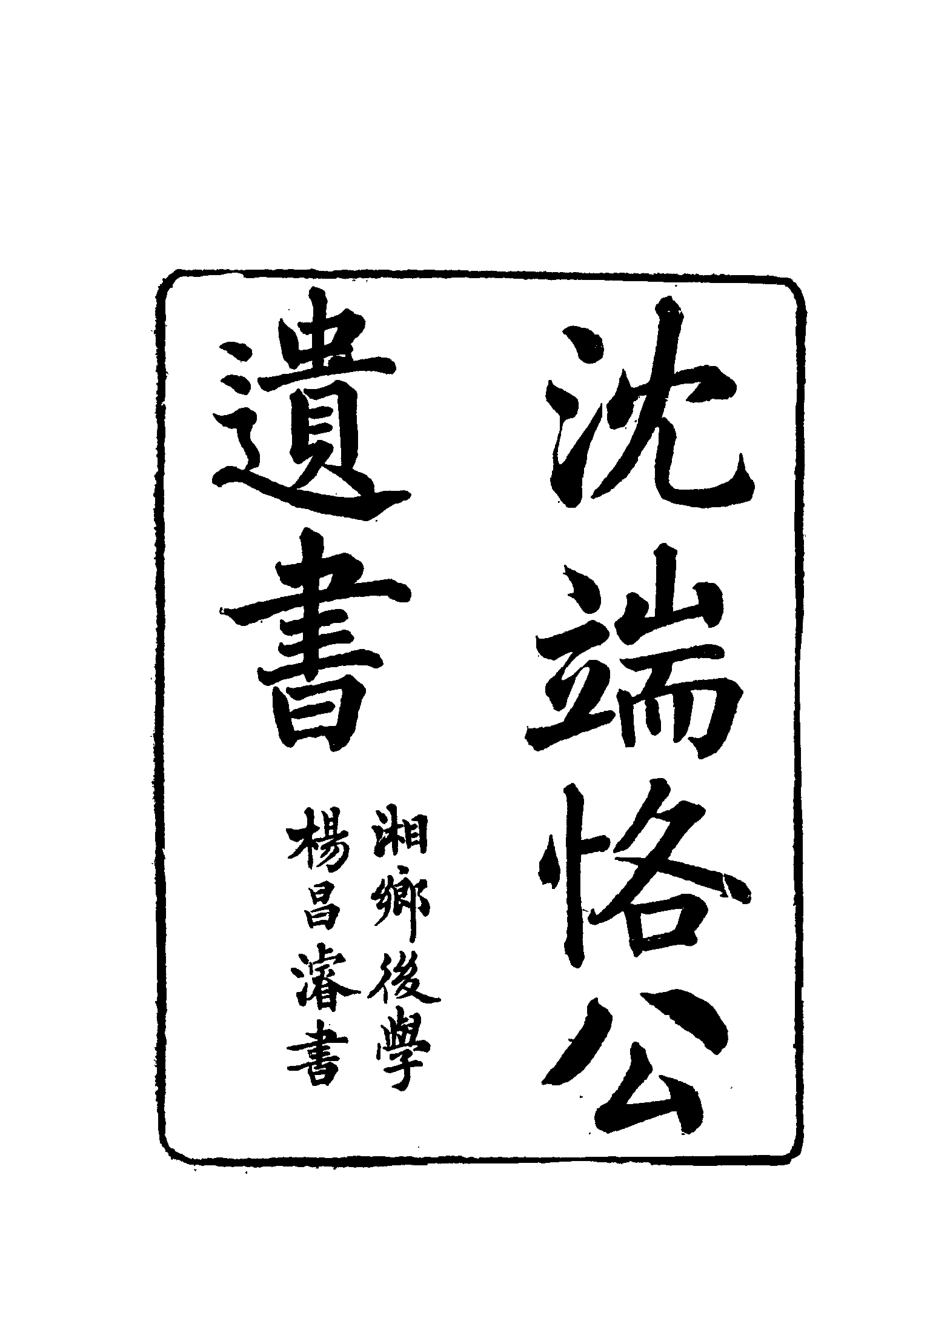 沈端恪公
遺書
湘鄉後學
楊昌濬書